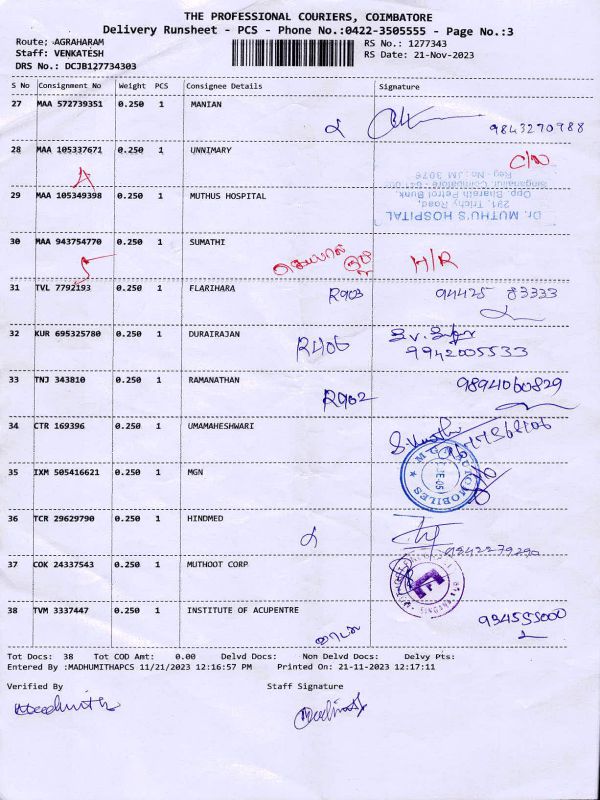 THE PROFESSIONAL COURIERS, COIMBATORE
Delivery Runsheet - PCS - Phone No.:0422-3505555 - Page No.:3
Route; AGRAHARAM
RS No.: 1277343
Staff: VENKATESH
RS Date: 21-Nov-2023
DRS No.: DCJB127734303
S No Consignment No Weight PCS Consignee Details Signature
27 MAA 572739351 0.250 1 MANIAN 9843270988
28 MAA 105337671 0.250 1 UNNIMARY C/N
29 MAA 105349398 0.250 1 MUTHUS HOSPITAL
Dr. MUTHU'S HOSPITAL
291, Trichy Road,
Opp. Bharath Petrol Bunk,
Reg. No: JM 3076
30 MAA 943754770 0.250 1 SUMATHI H/R
31 TVL 7792193 0.250 1 FLARIHARA R903 94425 83333
32 KUR 695325780 0.250 1 DURAIRAJAN R406
9942005533
33 TNJ 343810 0.250 1 RAMANATHAN R902 9894060829
34 CTR 169396 0.250 1 UMAMAHESHWARI
35 IXM 505416621 0.250 1 MGN
36 TCR 29629790 0.250 1 HINDMED
37 COK 24337543 0.250 1 MUTHOOT CORP
38 TVM 3337447 0.250 1 INSTITUTE OF ACUPENTRE
Tot Docs: 38 Tot COD Amt: 0.00 Delvd Docs: Non Delvd Docs: Delvy Pts:
Entered By :MADHUMITHAPCS 11/21/2023 12:16:57 PM Printed On: 21-11-2023 12:17:11
Verified By Staff Signature